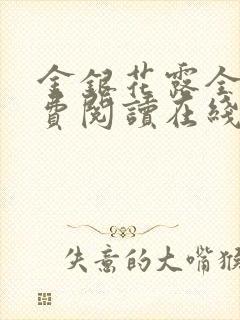 金銀花露全
費閱讀在綫
失意的大嘴猴